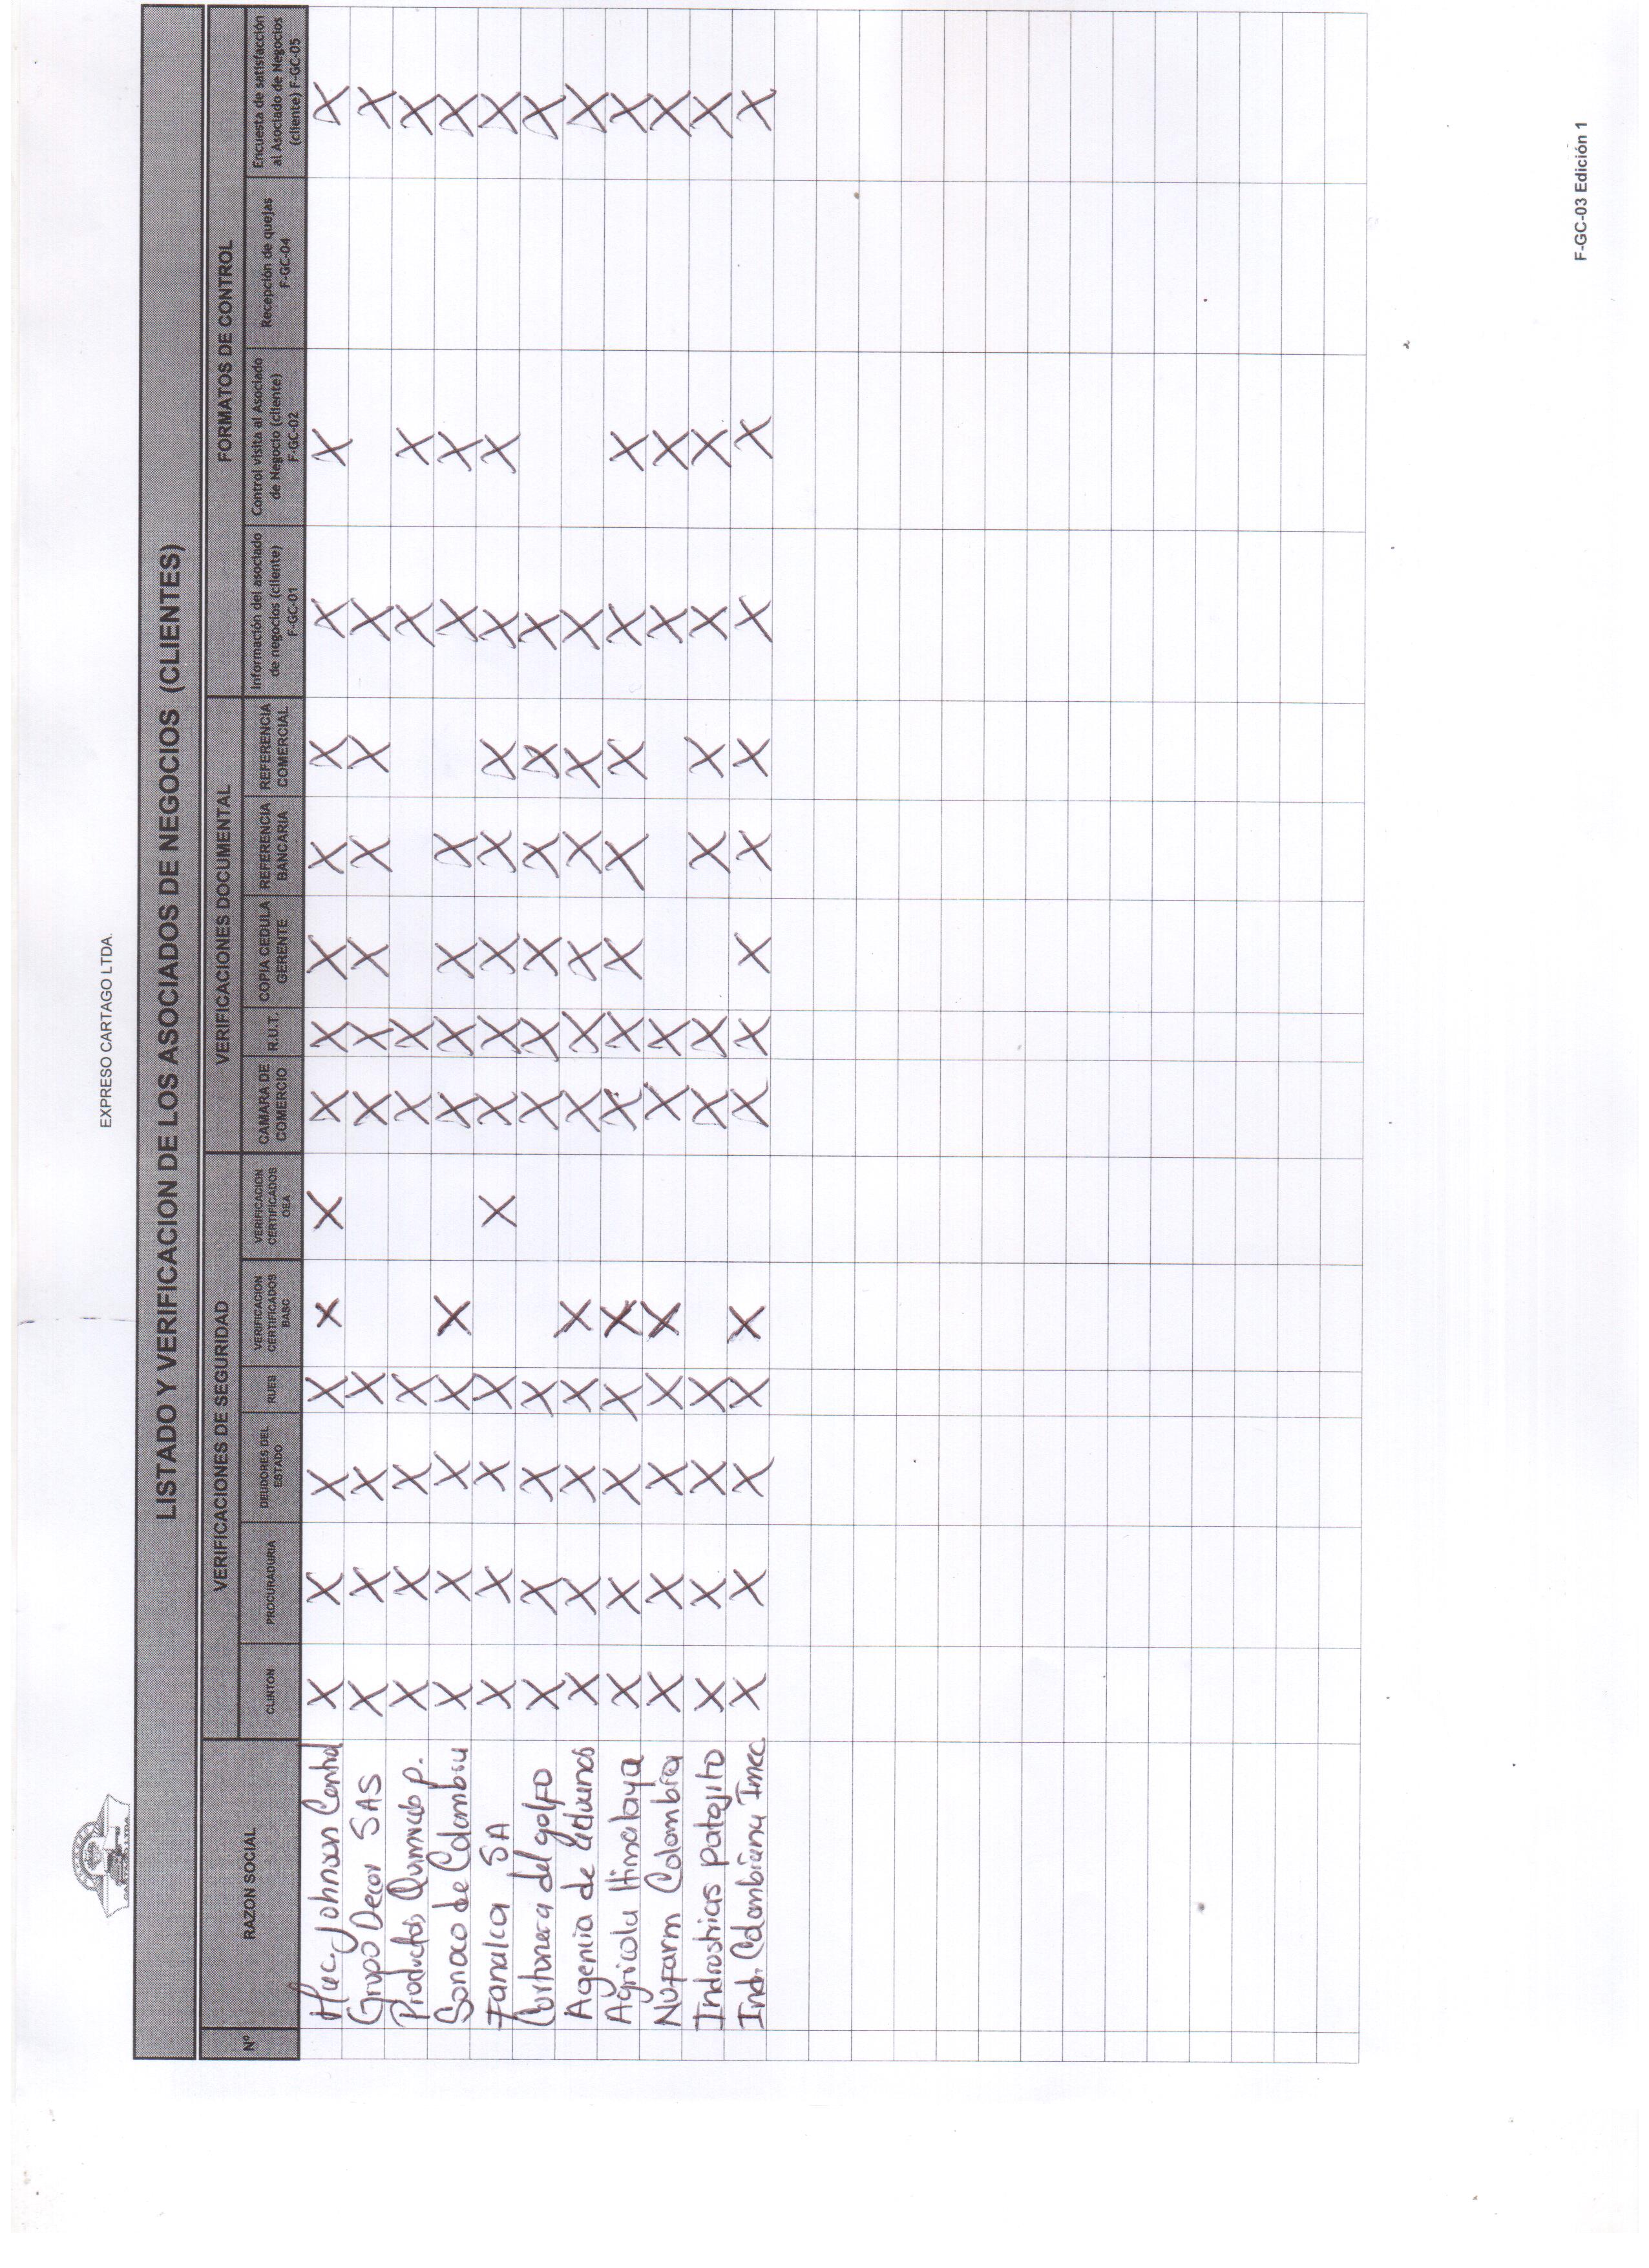 EXPRESO CARTAGO LTDA.
LISTADO Y VERIFICACION DE LOS ASOCIADOS DE NEGOCIOS (CLIENTES)
Nº RAZON SOCIAL VERIFICACIONES DE SEGURIDAD VERIFICACIONES DOCUMENTAL FORMATOS DE CONTROL
CLINTON PROCURADURIA DEUDORES DEL ESTADO RUES VERIFICACION CERTIFICADOS BASC VERIFICACION CERTIFICADOS OEA CAMARA DE COMERCIO R.U.T. COPIA CEDULA GERENTE REFERENCIA BANCARIA REFERENCIA COMERCIAL Información del asociado de negocios (cliente) F-GC-01 Control visita al Asociado de Negocio (cliente) F-GC-02 Recepción de quejas F-GC-04 Encuesta de satisfacción al Asociado de Negocios (cliente) F-GC-05
Mac Johnson Control X X X X X X X X X X X X X X
Grupo Decor SAS X X X X X X X X X X X
Productos Quimicos P. X X X X X X X X X
Sonoco de Colombia X X X X X X X X X X X X
Fanalca SA X X X X X X X X X X X X X
Cartonera del golfo X X X X X X X X X X X
Agencia de Aduanas X X X X X X X X X X X X
Agricola Himalaya X X X X X X X X X X X X X
Nufarm Colombia X X X X X X X X X X
Industrias Patojito X X X X X X X X X X X
Ind. Colombiana Imec X X X X X X X X X X X X X
F-GC-03 Edición 1